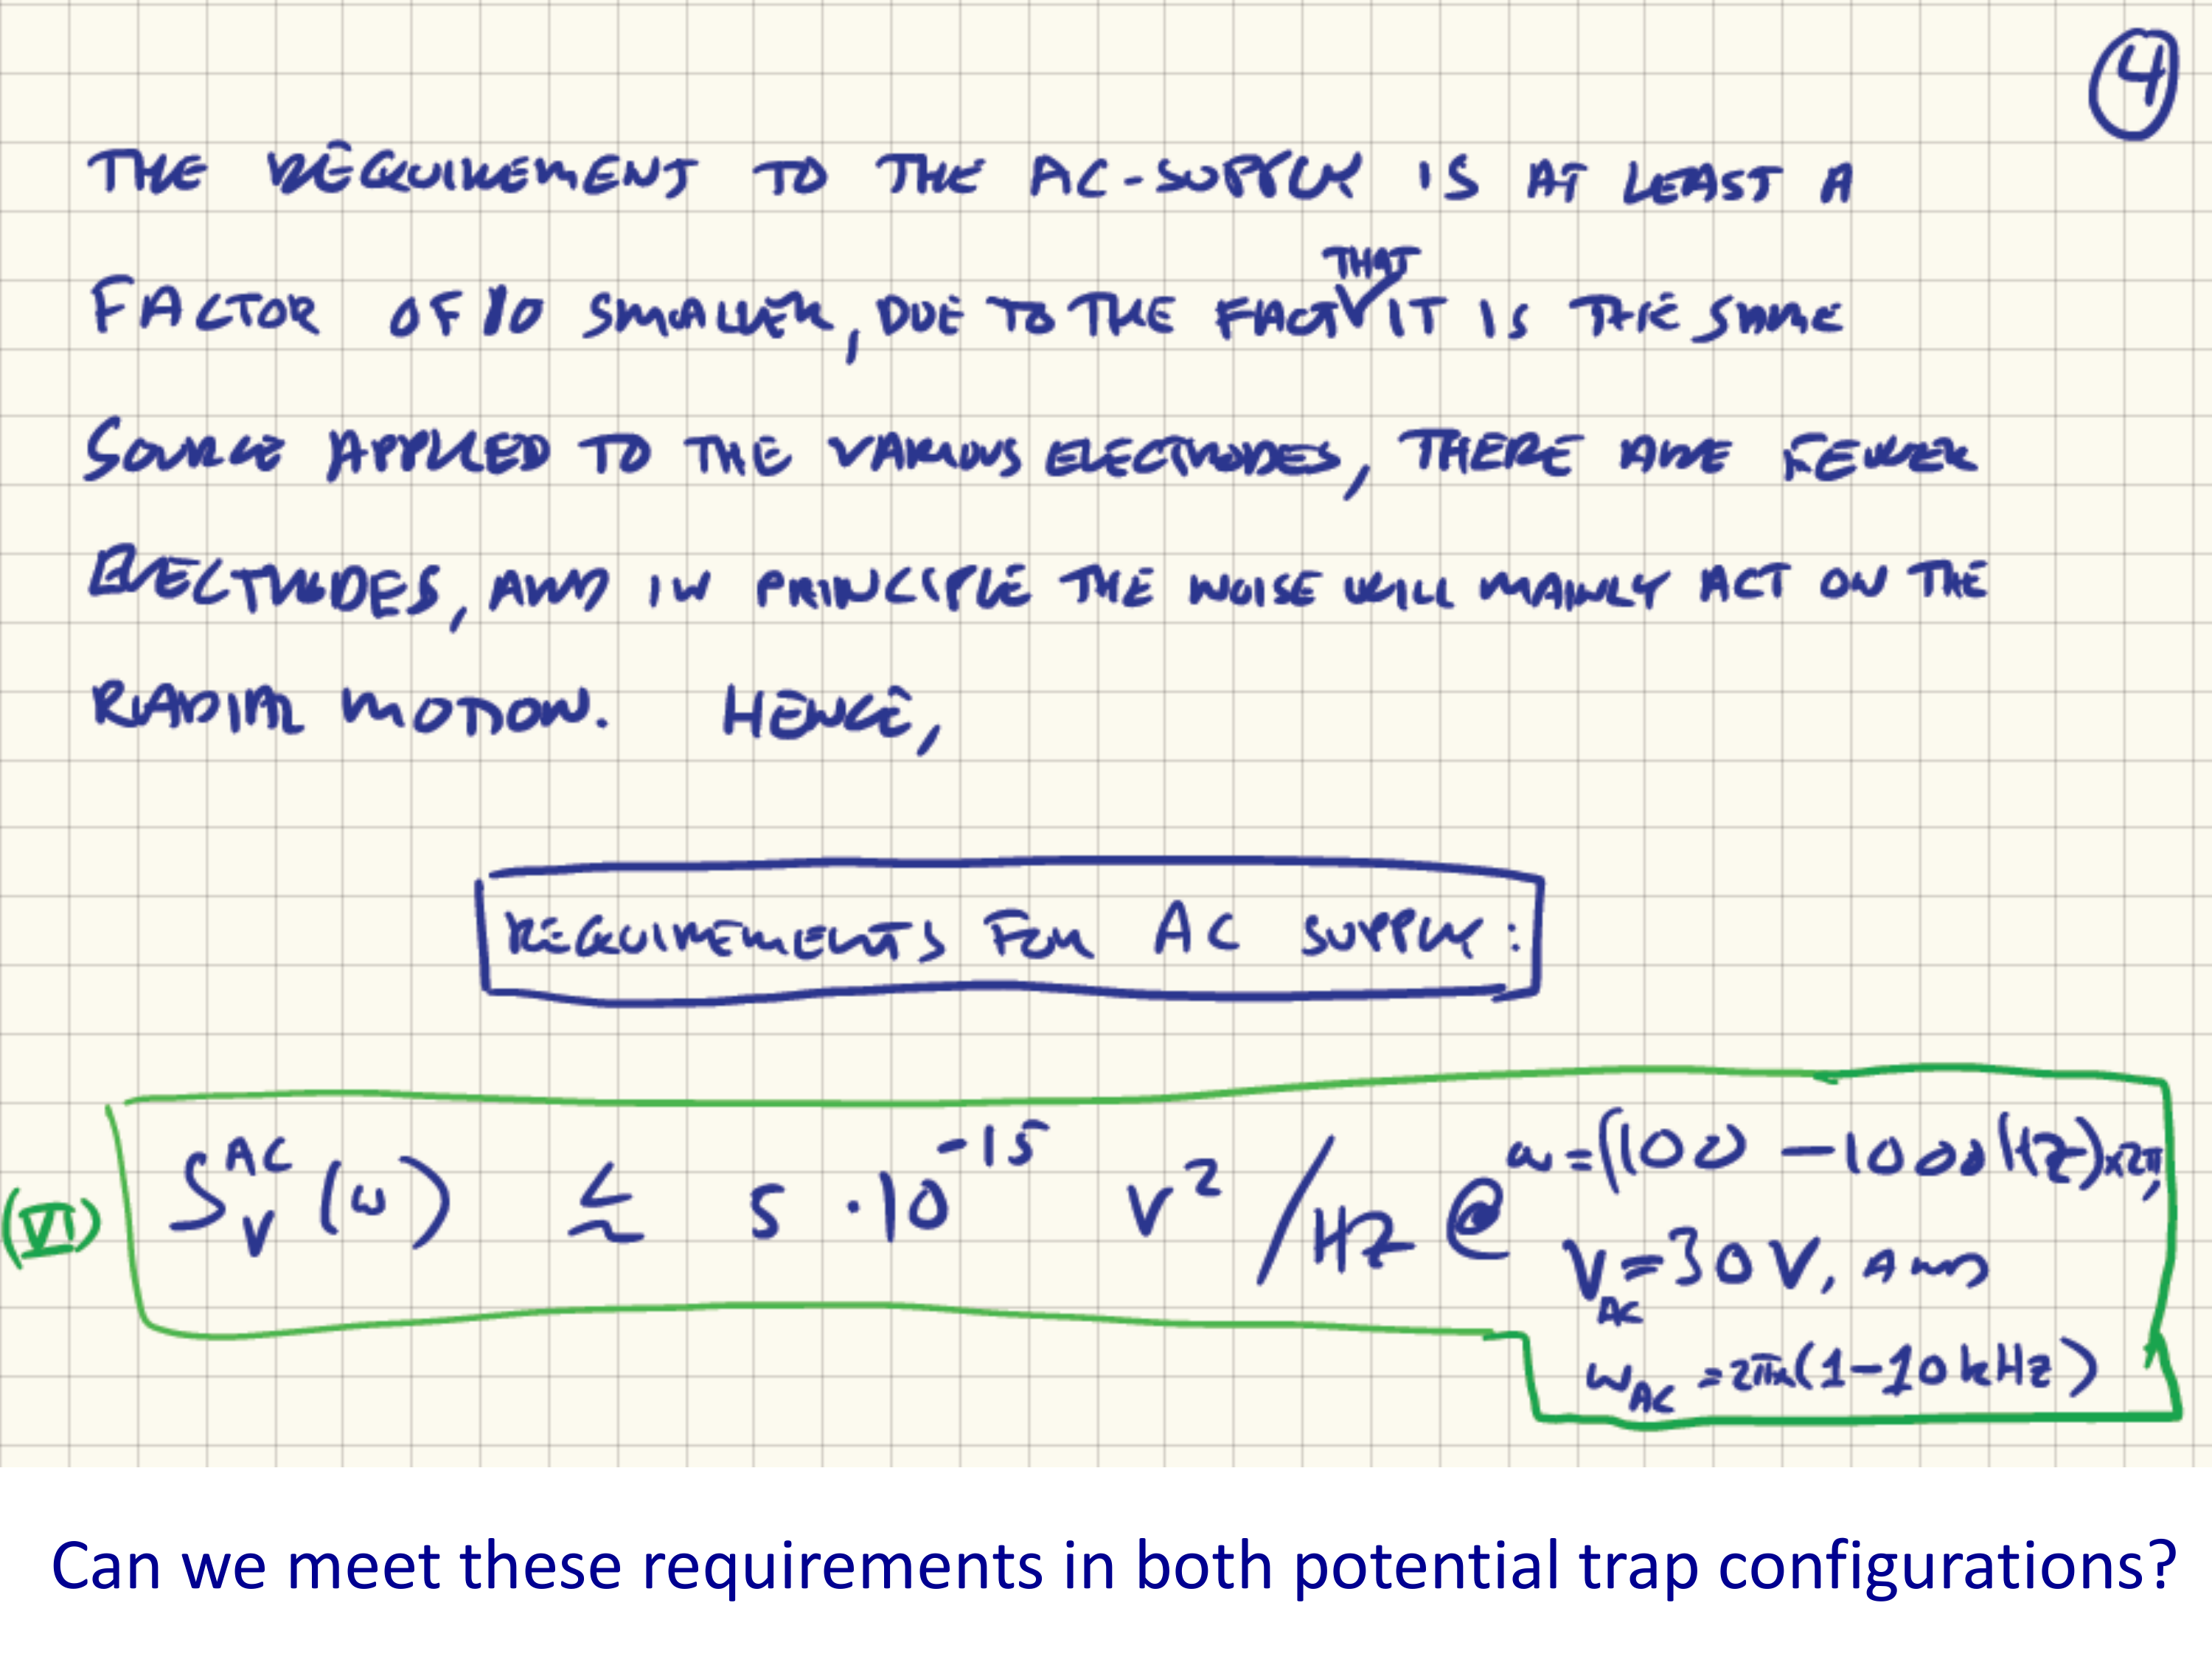 4
THE REQUIREMENT TO THE AC-SUPPLY IS AT LEAST A
FACTOR OF 10 SMALLER, DUE TO THE FACT THAT IT IS THE SAME
SOURCE APPLIED TO THE VARIOUS ELECTRODES, THERE ARE FEWER
ELECTRODES, AND IN PRINCIPLE THE NOISE WILL MAINLY ACT ON THE
RADIAL MOTION. HENCE,
REQUIREMENTS FOR AC SUPPLY:
(VI) S_V^AC (ω) ≤ 5 · 10^-15 V^2/Hz @ ω = (100 - 1000 Hz) x 2π,
V_AC = 30 V, AND
ω_AC = 2π x (1-10 kHz)
Can we meet these requirements in both potential trap configurations?